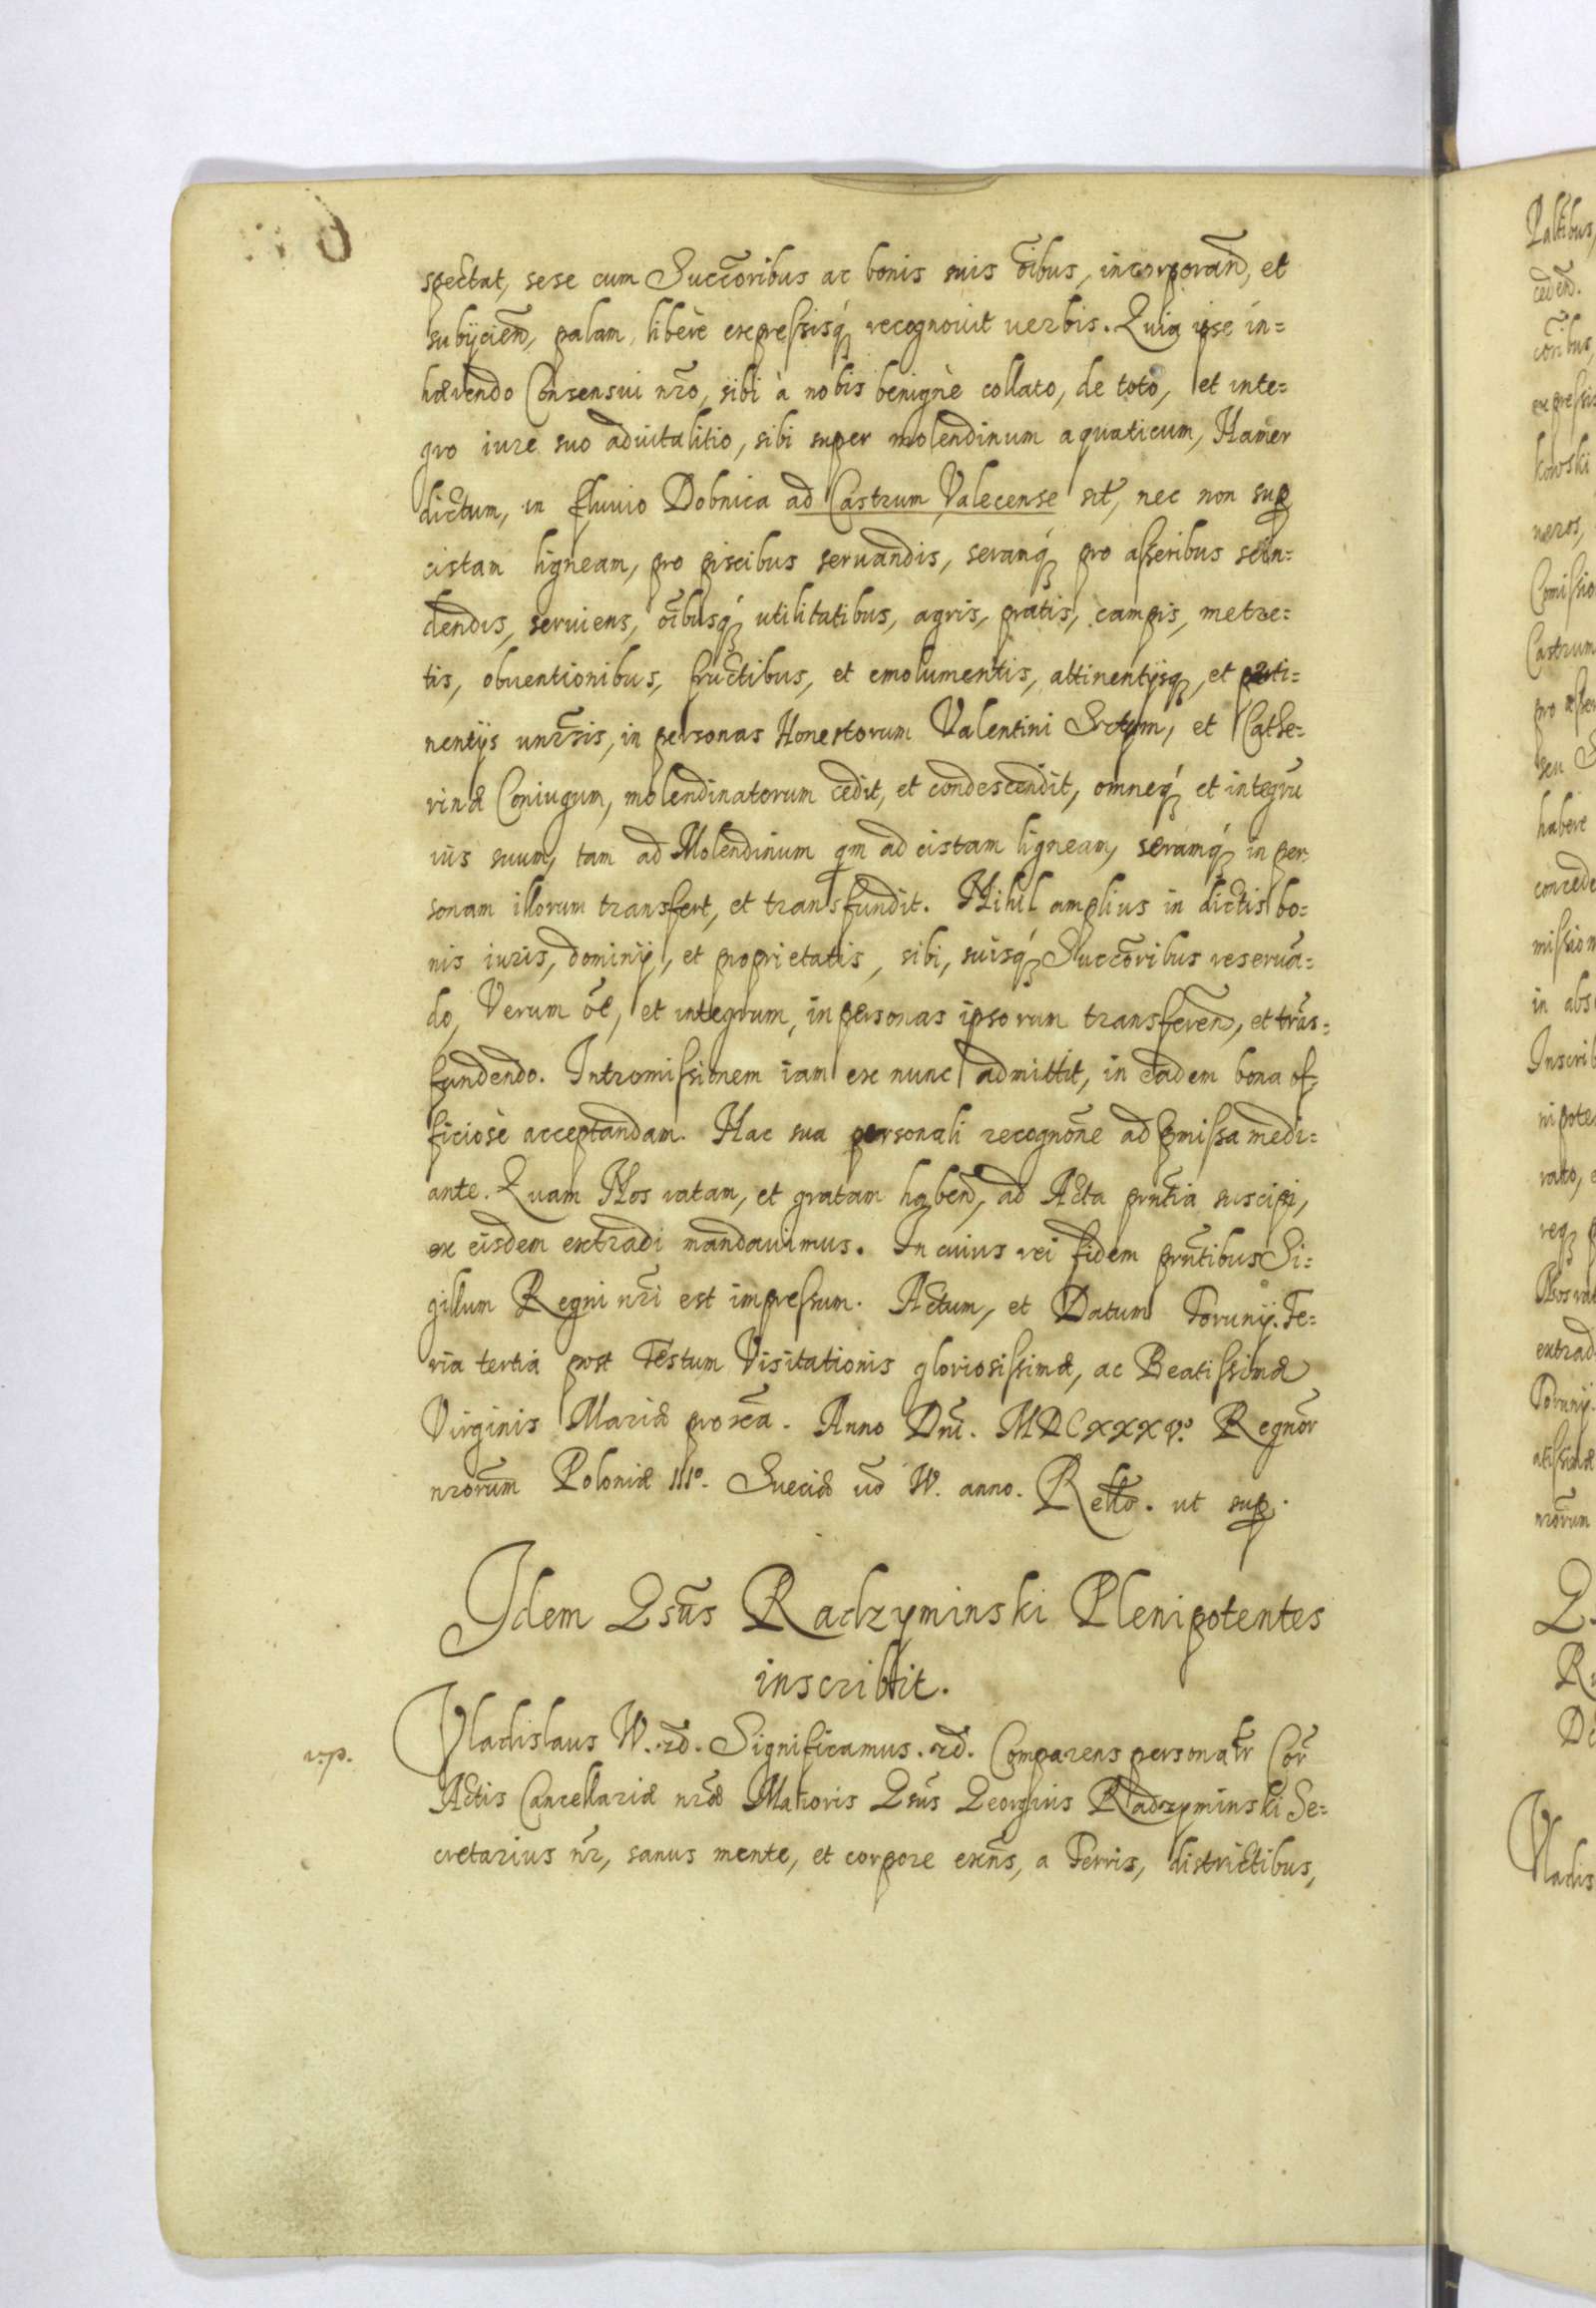 spectat, sese cum Succōribus ac bonis suis oībus, incorporan̄, et
subijcien̄, palam, liberè expressisq́ recognouit uerbis. Quia ipse in=
hærendo Consensui nr̄o, sibi à nobis benignè collato, de toto, et inte=
gro iure suo aduitalitio, sibi super molendinum aquaticum, Hamer
dictum, in fluuio Dobnica ad Castrum Valecense sit̄, nec non sup
cistam ligneam, pro piscibus seruandis, serramq́ pro asseribus scin=
dendis, seruiens, oībusq́ utilitatibus, agris, pratis, campis, metre=
tis, obuentionibus, fructibus, et emolumentis, attinentijsq, et perti=
nentijs unr̄sis, in personas Honestorum Valentini et Cathe=
rinæ Coniugum, molendinatorum cedit, et condescendit, omneq́ et integrū
ius suum, tam ad Molendinum qm ad cistam ligneam, serramq́ in per=
sonam illorum transfert, et transfundit. Nihil amplius in dictis bo=
nis iuris, dominij, et proprietatis, sibi, suisq́ Succōribus reseruā=
do, Verum ōe, et integrum, in personas ipsorum transferen̄, et trās=
fundendo. Intromissionem iam ex nunc admittit, in eadem bona of=
ficiosè acceptandam. Hac sua personali recognōne ad pmissa medi=
ante. Quam Nos ratam, et gratam haben̄, ad Acta prn̄tia suscipi,
ex eisdem extradi mandauimus. In cuius rei fidem prn̄tibus Si=
gillum Regni nr̄i est impressum. Actum, et Datum Torunij. Fe=
ria tertia post Festum Visitationis gloriosissimæ, ac Beatissimæ
Virginis Mariæ proxā. Anno Dnī. MDCXXXV.º Regnor̄
nrorūm Poloniæ IIIº. Sueciæ uō IV. anno. Rellō. ut sup.
Idem Gsūs Radzyminski Plenipotentes
inscribit.
r.p.
Vladislaus IV. rd̄. Significamus. rd̄. Comparens personalr̄ Cor̄
Actis Cancellariæ nr̄æ Maioris Gsūs Georgius Radzyminski Se=
cretarius nr̄, sanus mente, et corpore exn̄s, a Terris, districtibus,